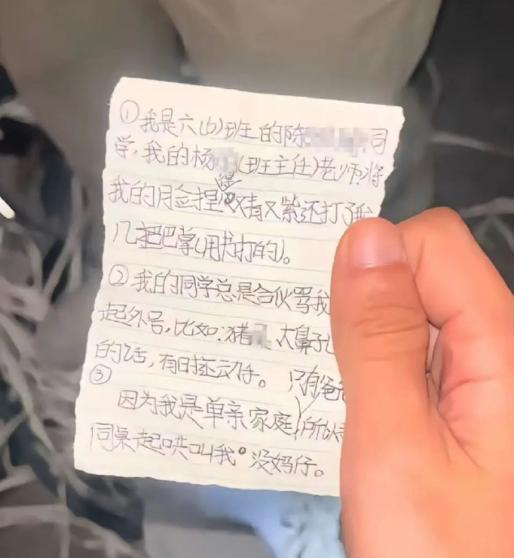 ①我是六(6)班的陈 同
学,我的杨 (班主任)老师将
我的胳膊捏 又青又紫还打了
几把巴掌(用书打的)。
②我的同学总是合伙骂我
起外号,比如:猪 大鼻子
的话,有时还动手。 只有爸爸
③
因为我是单亲家庭, 所以
同桌起哄叫我“没妈仔。